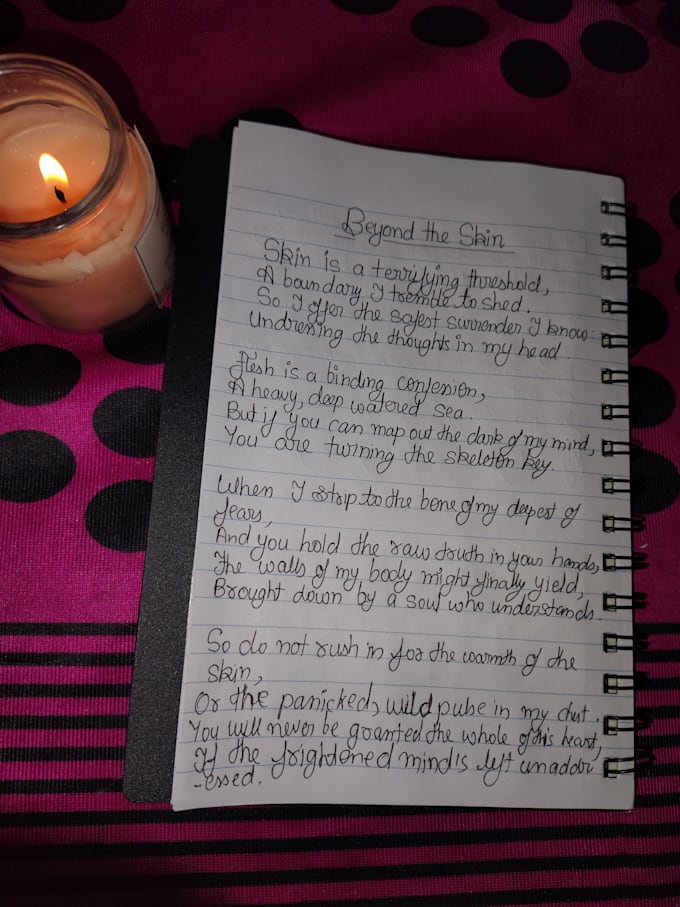 Beyond the Skin
Skin is a terrifying threshold,
A boundary I tremble to shed.
So I offer the safest surrender I know:
Undressing the thoughts in my head.
Flesh is a binding confession,
A heavy, deep watered sea.
But if you can map out the dark of my mind,
You are turning the skeleton key.
When I strip to the bone of my deepest of
fears,
And you hold the raw truth in your hands,
The walls of my body might finally yield,
Brought down by a soul who understands.
So do not rush in for the warmth of the
skin,
Or the panicked, wild pulse in my chest.
You will never be granted the whole of this heart,
If the frightened mind is left unaddr
-essed.